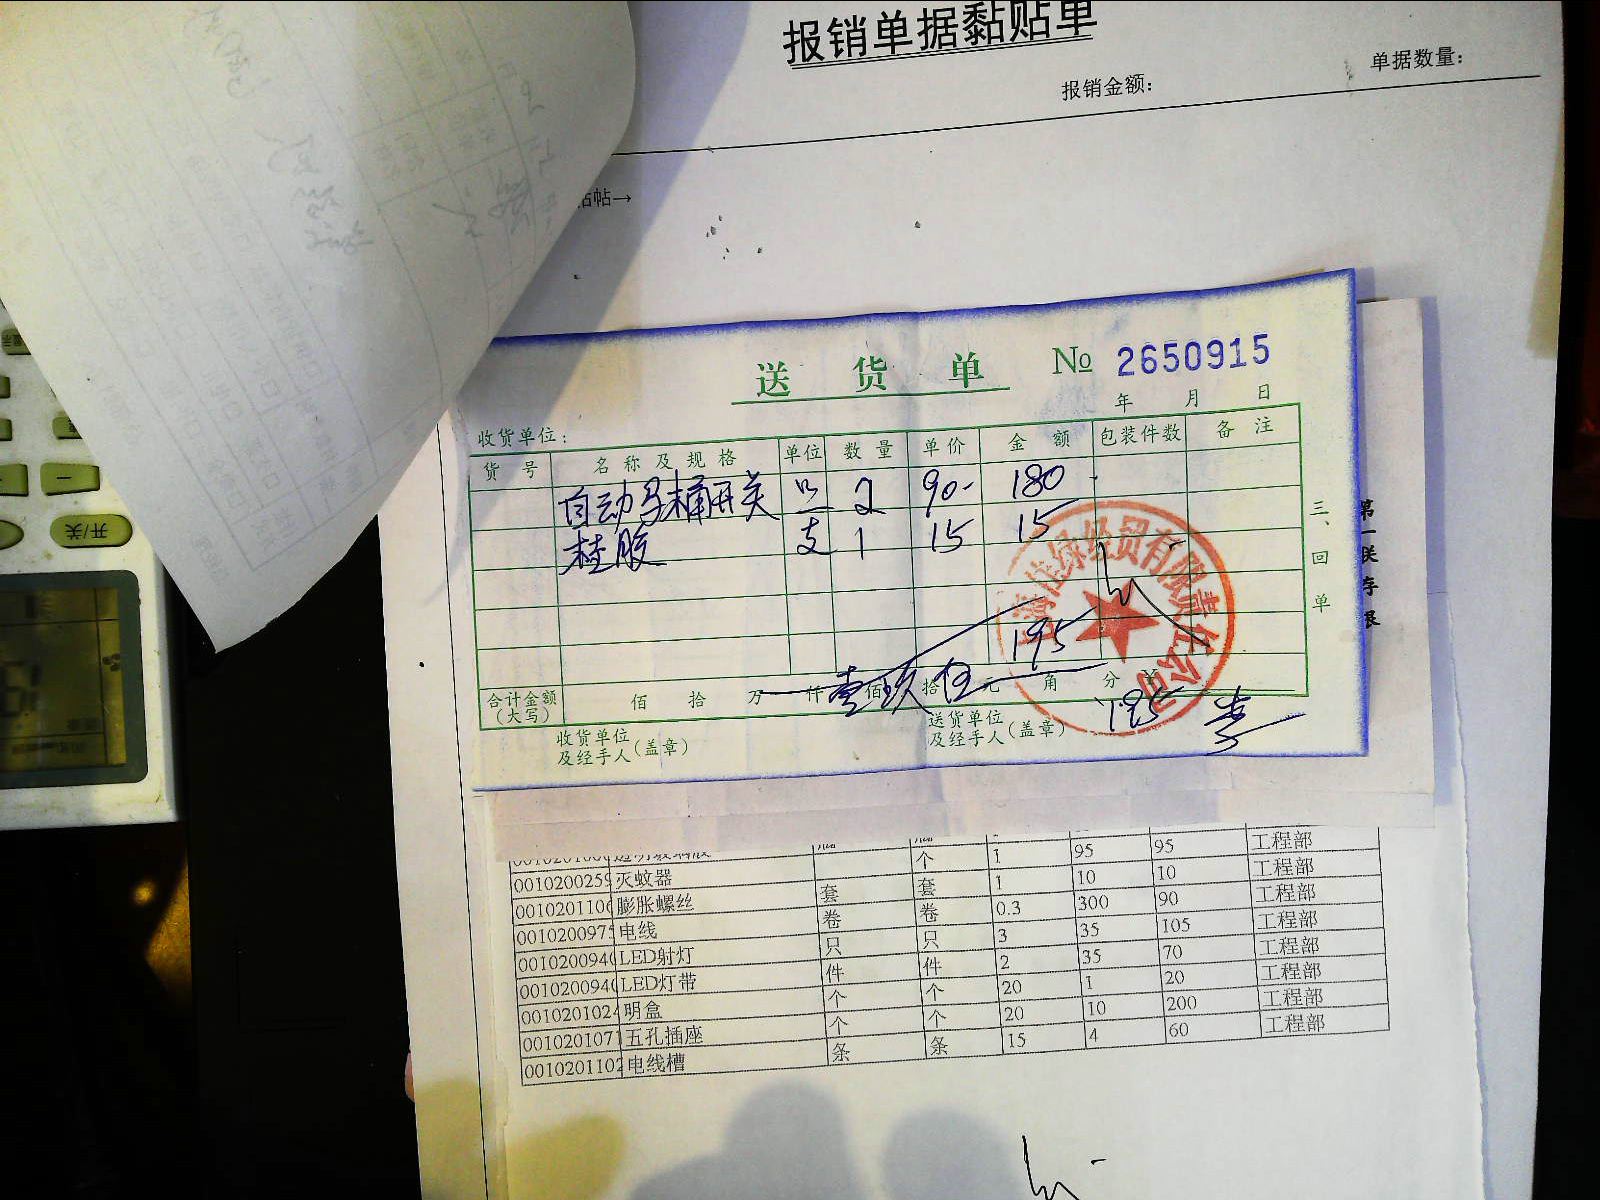 报销单据黏贴单
报销金额：
单据数量：
帖→
送货单 № 2650915
年 月 日
收货单位：
货号 名称及规格 单位 数量 单价 金额 包装件数 备注
自动马桶开关 只 2 90- 180
桂胶 支 1 15 15
195
合计金额（大写） 佰 拾 万 仟 壹佰 玖拾 伍元 角 分 ￥195
收货单位及经手人（盖章）
送货单位及经手人（盖章） 李
三、回单
佳绿经贸有限责任公司
第一联存根
个 1 95 95 工程部
0010200259 灭蚊器 10 10 工程部
001020110 膨胀螺丝 套 套 1
001020097 电线 卷 卷 0.3 300 90 工程部
001020094 LED射灯 只 只 3 35 105 工程部
001020094 LED灯带 件 件 2 35 70 工程部
001020102 明盒 个 个 20 1 20 工程部
001020107 五孔插座 个 个 20 10 200 工程部
001020110 电线槽 条 条 15 4 60 工程部
开/关